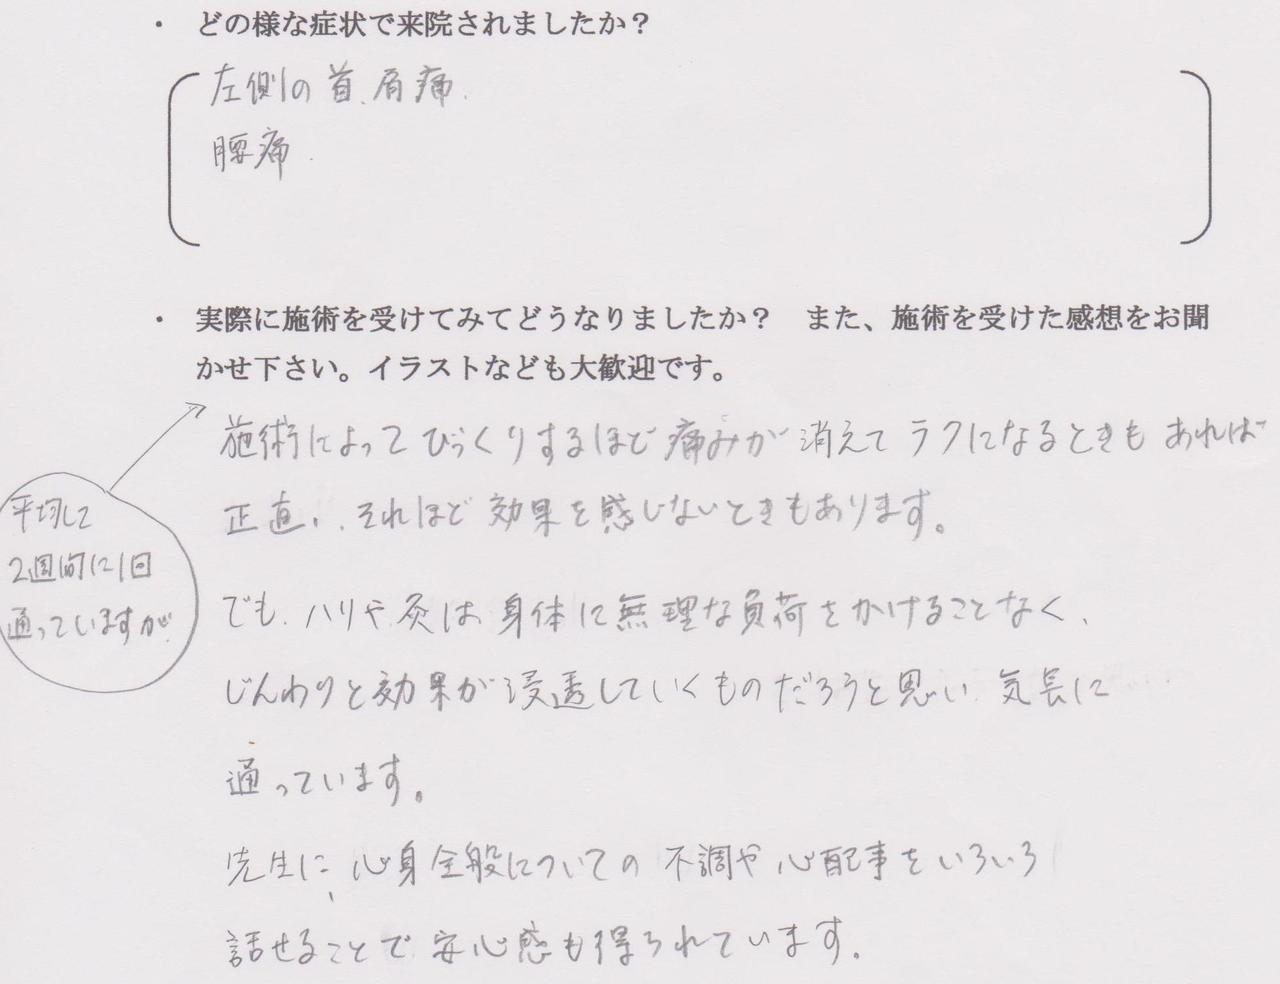 ・ どの様な症状で来院されましたか？
左側の首、肩痛、
腰痛、
・ 実際に施術を受けてみてどうなりましたか？ また、施術を受けた感想をお聞
かせ下さい。イラストなども大歓迎です。
平均して
2週間に1回
通っていますが、
施術によってびっくりするほど痛みが消えてラクになるときもあれば
正直、それほど効果を感じないときもあります。
でも、ハリや灸は身体に無理な負荷をかけることなく、
じんわりと効果が浸透していくものだろうと思い、気長に
通っています。
先生に、心身全般についての不調や心配事をいろいろ
話せることで、安心感も得られています。